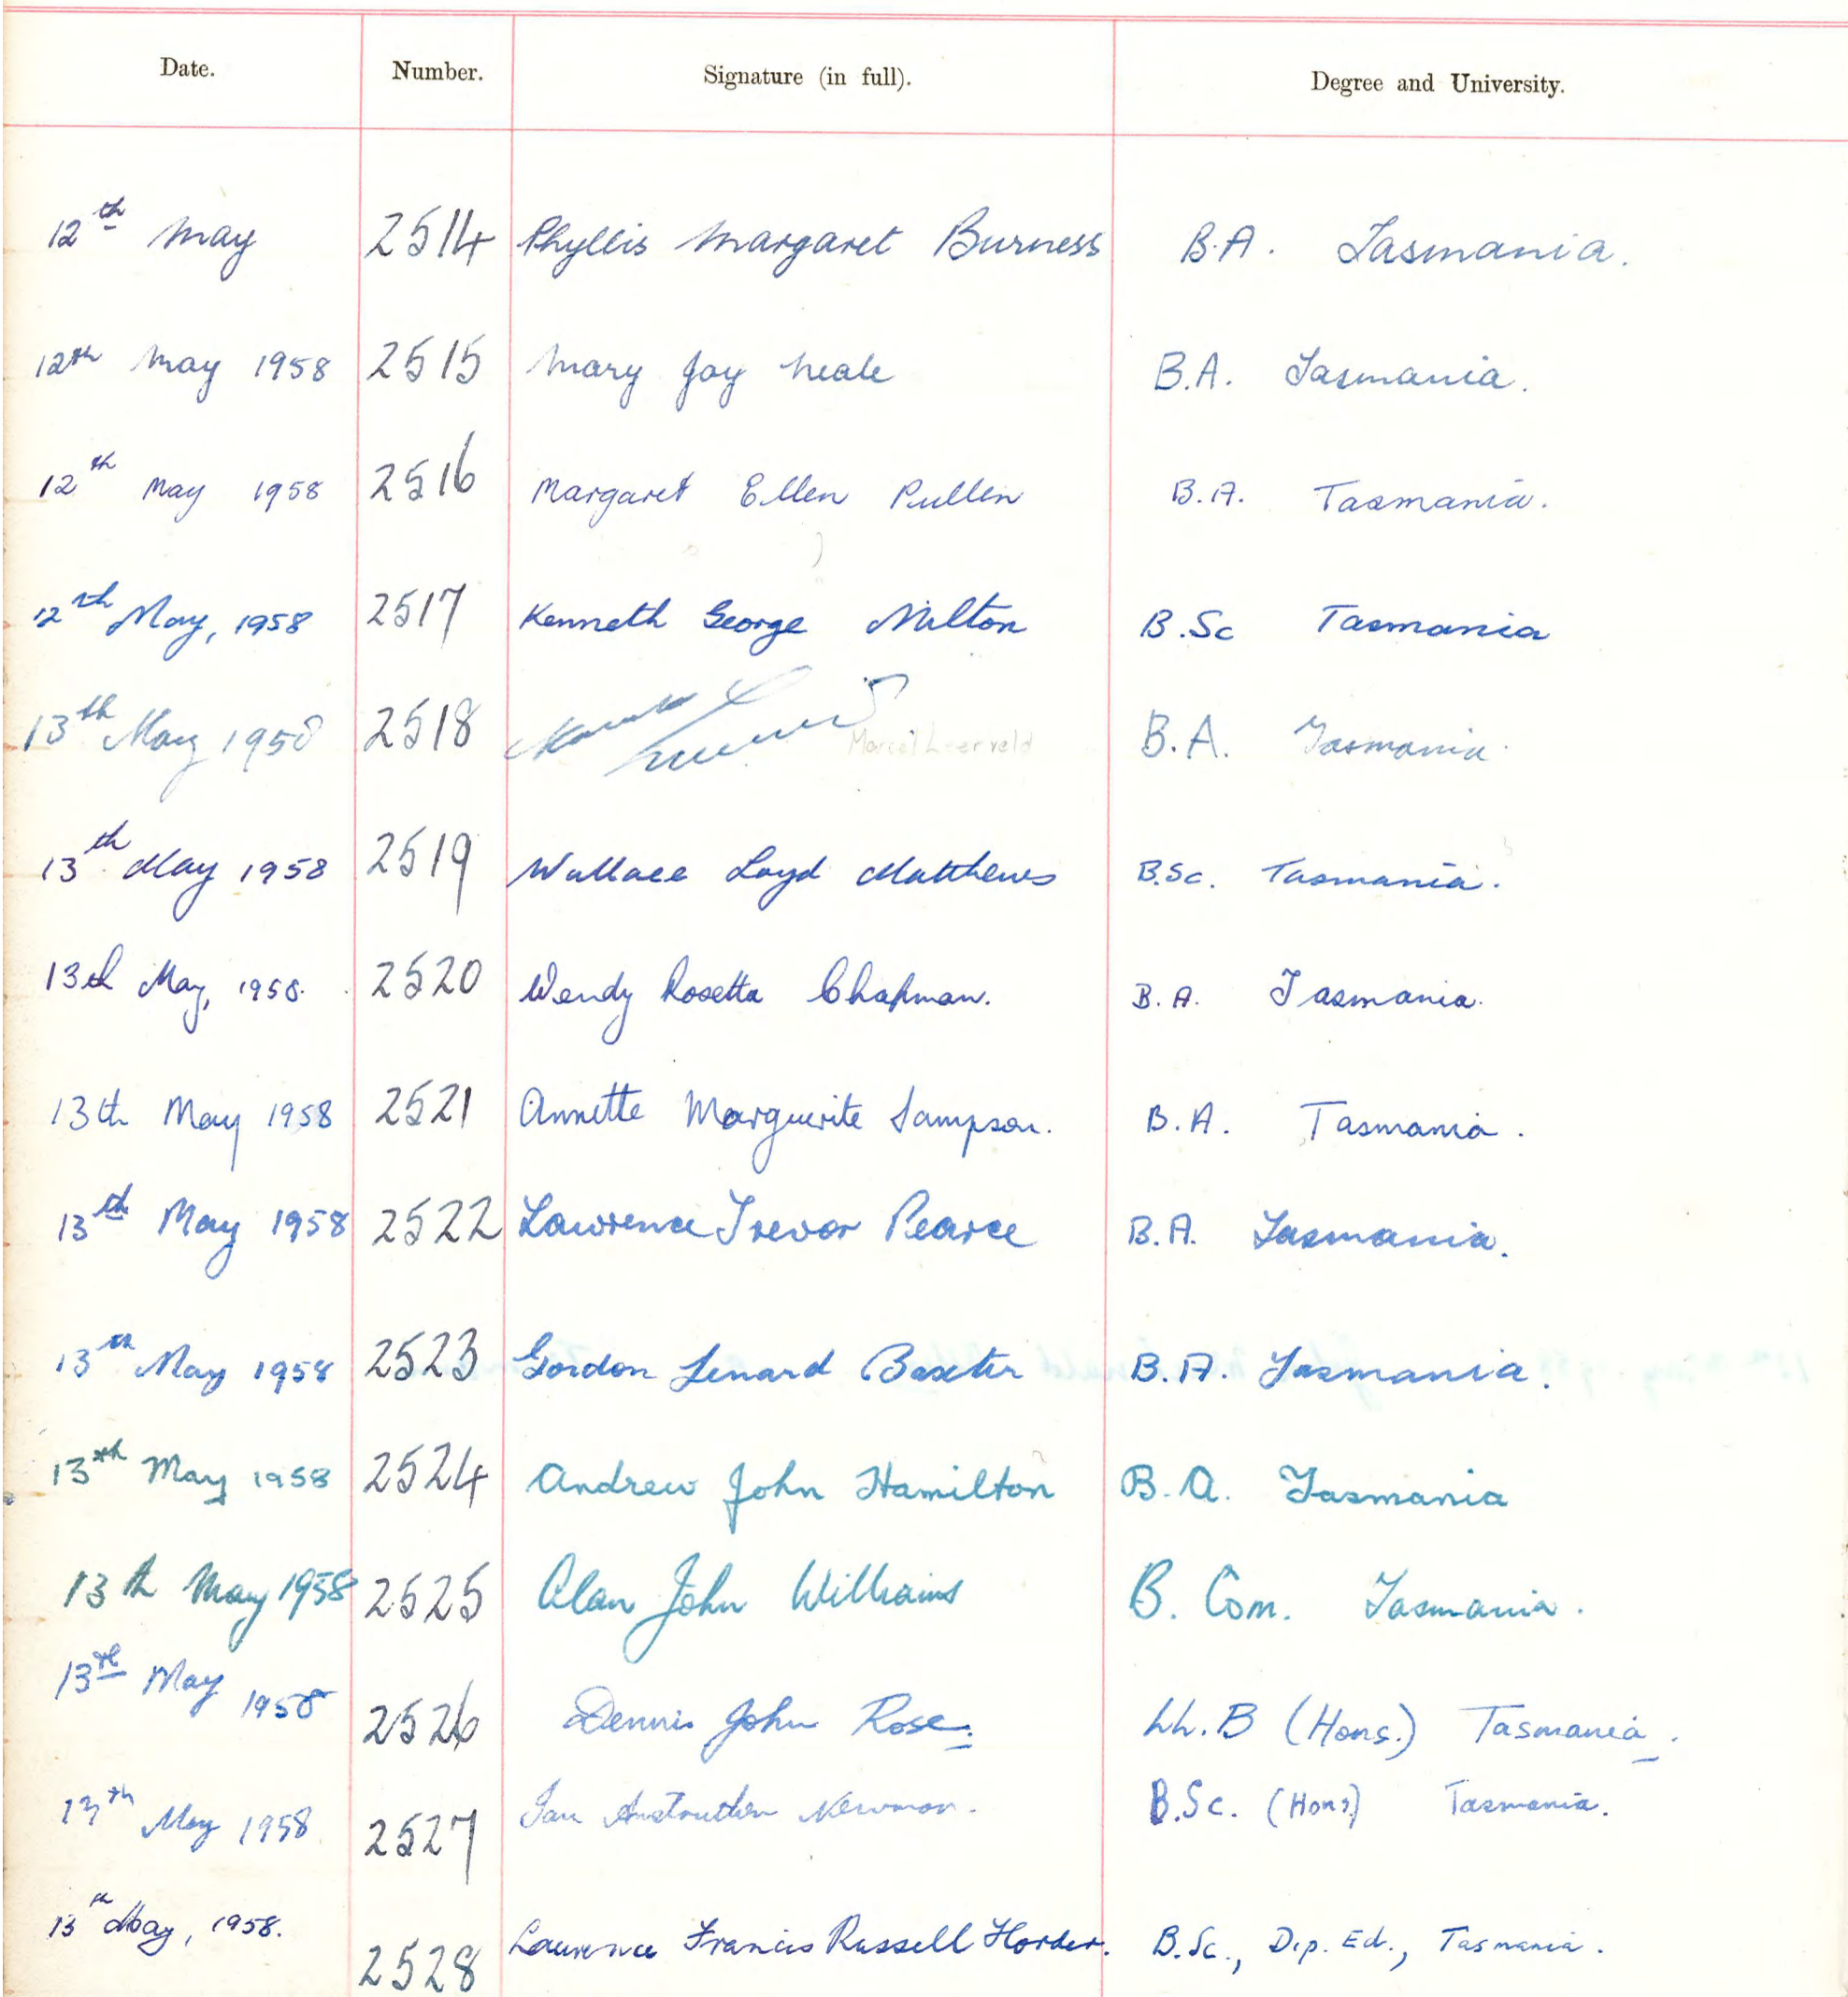 Date. Number. Signature (in full). Degree and University.
12th May 2514 Phyllis Margaret Burness B.A. Tasmania.
12th May 1958 2515 Mary Joy Neale B.A. Tasmania.
12th May 1958 2516 Margaret Ellen Pullen B.A. Tasmania.
12th May, 1958 2517 Kenneth George Milton B.Sc Tasmania
13th May 1958 2518 Marcel B.A. Tasmania.
13th May 1958 2519 Wallace Loyd Matthews B.Sc. Tasmania.
13th May, 1958. 2520 Wendy Rosetta Chapman. B.A. Tasmania.
13th May 1958 2521 Annette Marguerite Sampson. B.A. Tasmania.
13th May 1958 2522 Lawrence Trevor Pearce B.A. Tasmania.
13th May 1958 2523 Gordon Lenard Baxter B.A. Tasmania.
13th May 1958 2524 Andrew John Hamilton B.A. Tasmania
13th May 1958 2525 Alan John Williams B. Com. Tasmania.
13th May 1958 2526 Dennis John Rose. LL.B (Hons.) Tasmania.
13th May 1958 2527 Ian Anstruther Newman. B.Sc. (Hons) Tasmania.
13th May, 1958. 2528 Laurence Francis Russell Horder. B.Sc., Dip. Ed., Tasmania.